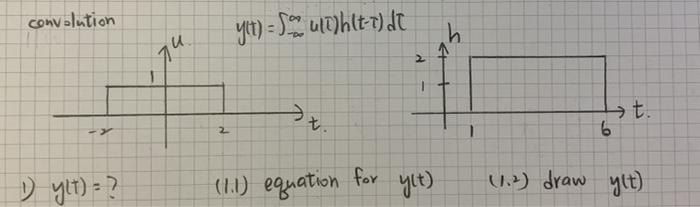 convolution
y(t) = ∫_{-∞}^{∞} u(τ)h(t-τ)dτ
u
1
-2
2
t.
h
2
1
1
6
t.
1) y(t) = ?
(1.1) equation for y(t)
(1.2) draw y(t)